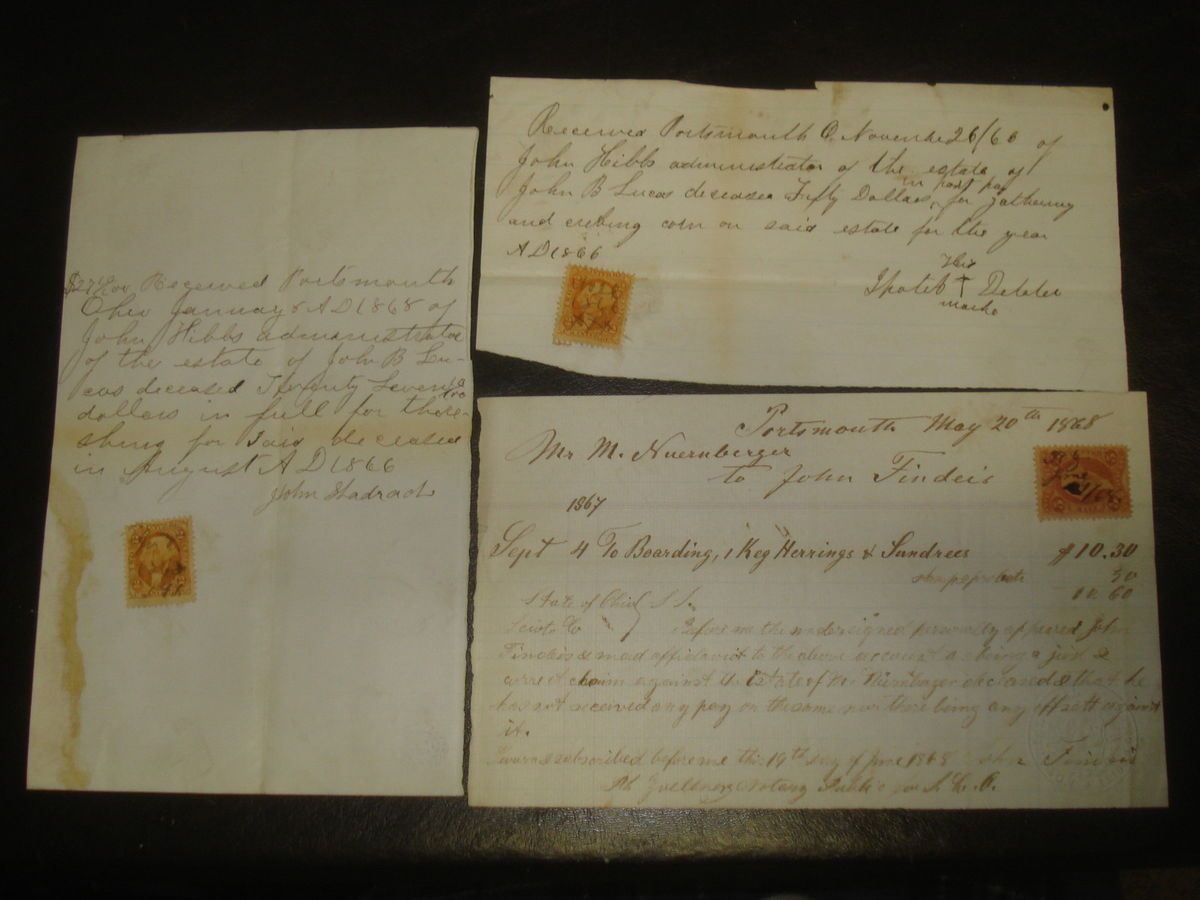 Received Portsmouth
Ohio January 8 AD 1868 of
John Hibbs administrator
of the estate of John B Lu-
cas deceased Twenty Seven
dollars in full for thre-
shing for said deceased
in August AD 1866
John Shadrach
Received Portsmouth O. November 26/66 of
John Hibbs administrator of the estate of
in part pay
John B Lucas deceased Fifty Dollars, for gathering
and cribing corn on said estate for the year
AD 1866
His
marke
Portsmouth May 20th 1868
Mr M. Nuernberger
to John Findeis
1867
Sept 4 To Boarding, 1 Keg Herrings & Sundrees $10.30
10.60
State of Ohio S S.
Scioto Co Before me the undersigned personally appeared John
Findeis & mad affidavit to the above account as being a just &
correct claim against the Estate of Nuernberger deceased & that he
has not received any pay on the same nor there being any offsett against
it.
Sworn & subscribed before me this 19th day of June 1868
Notary Public for S. C. O.